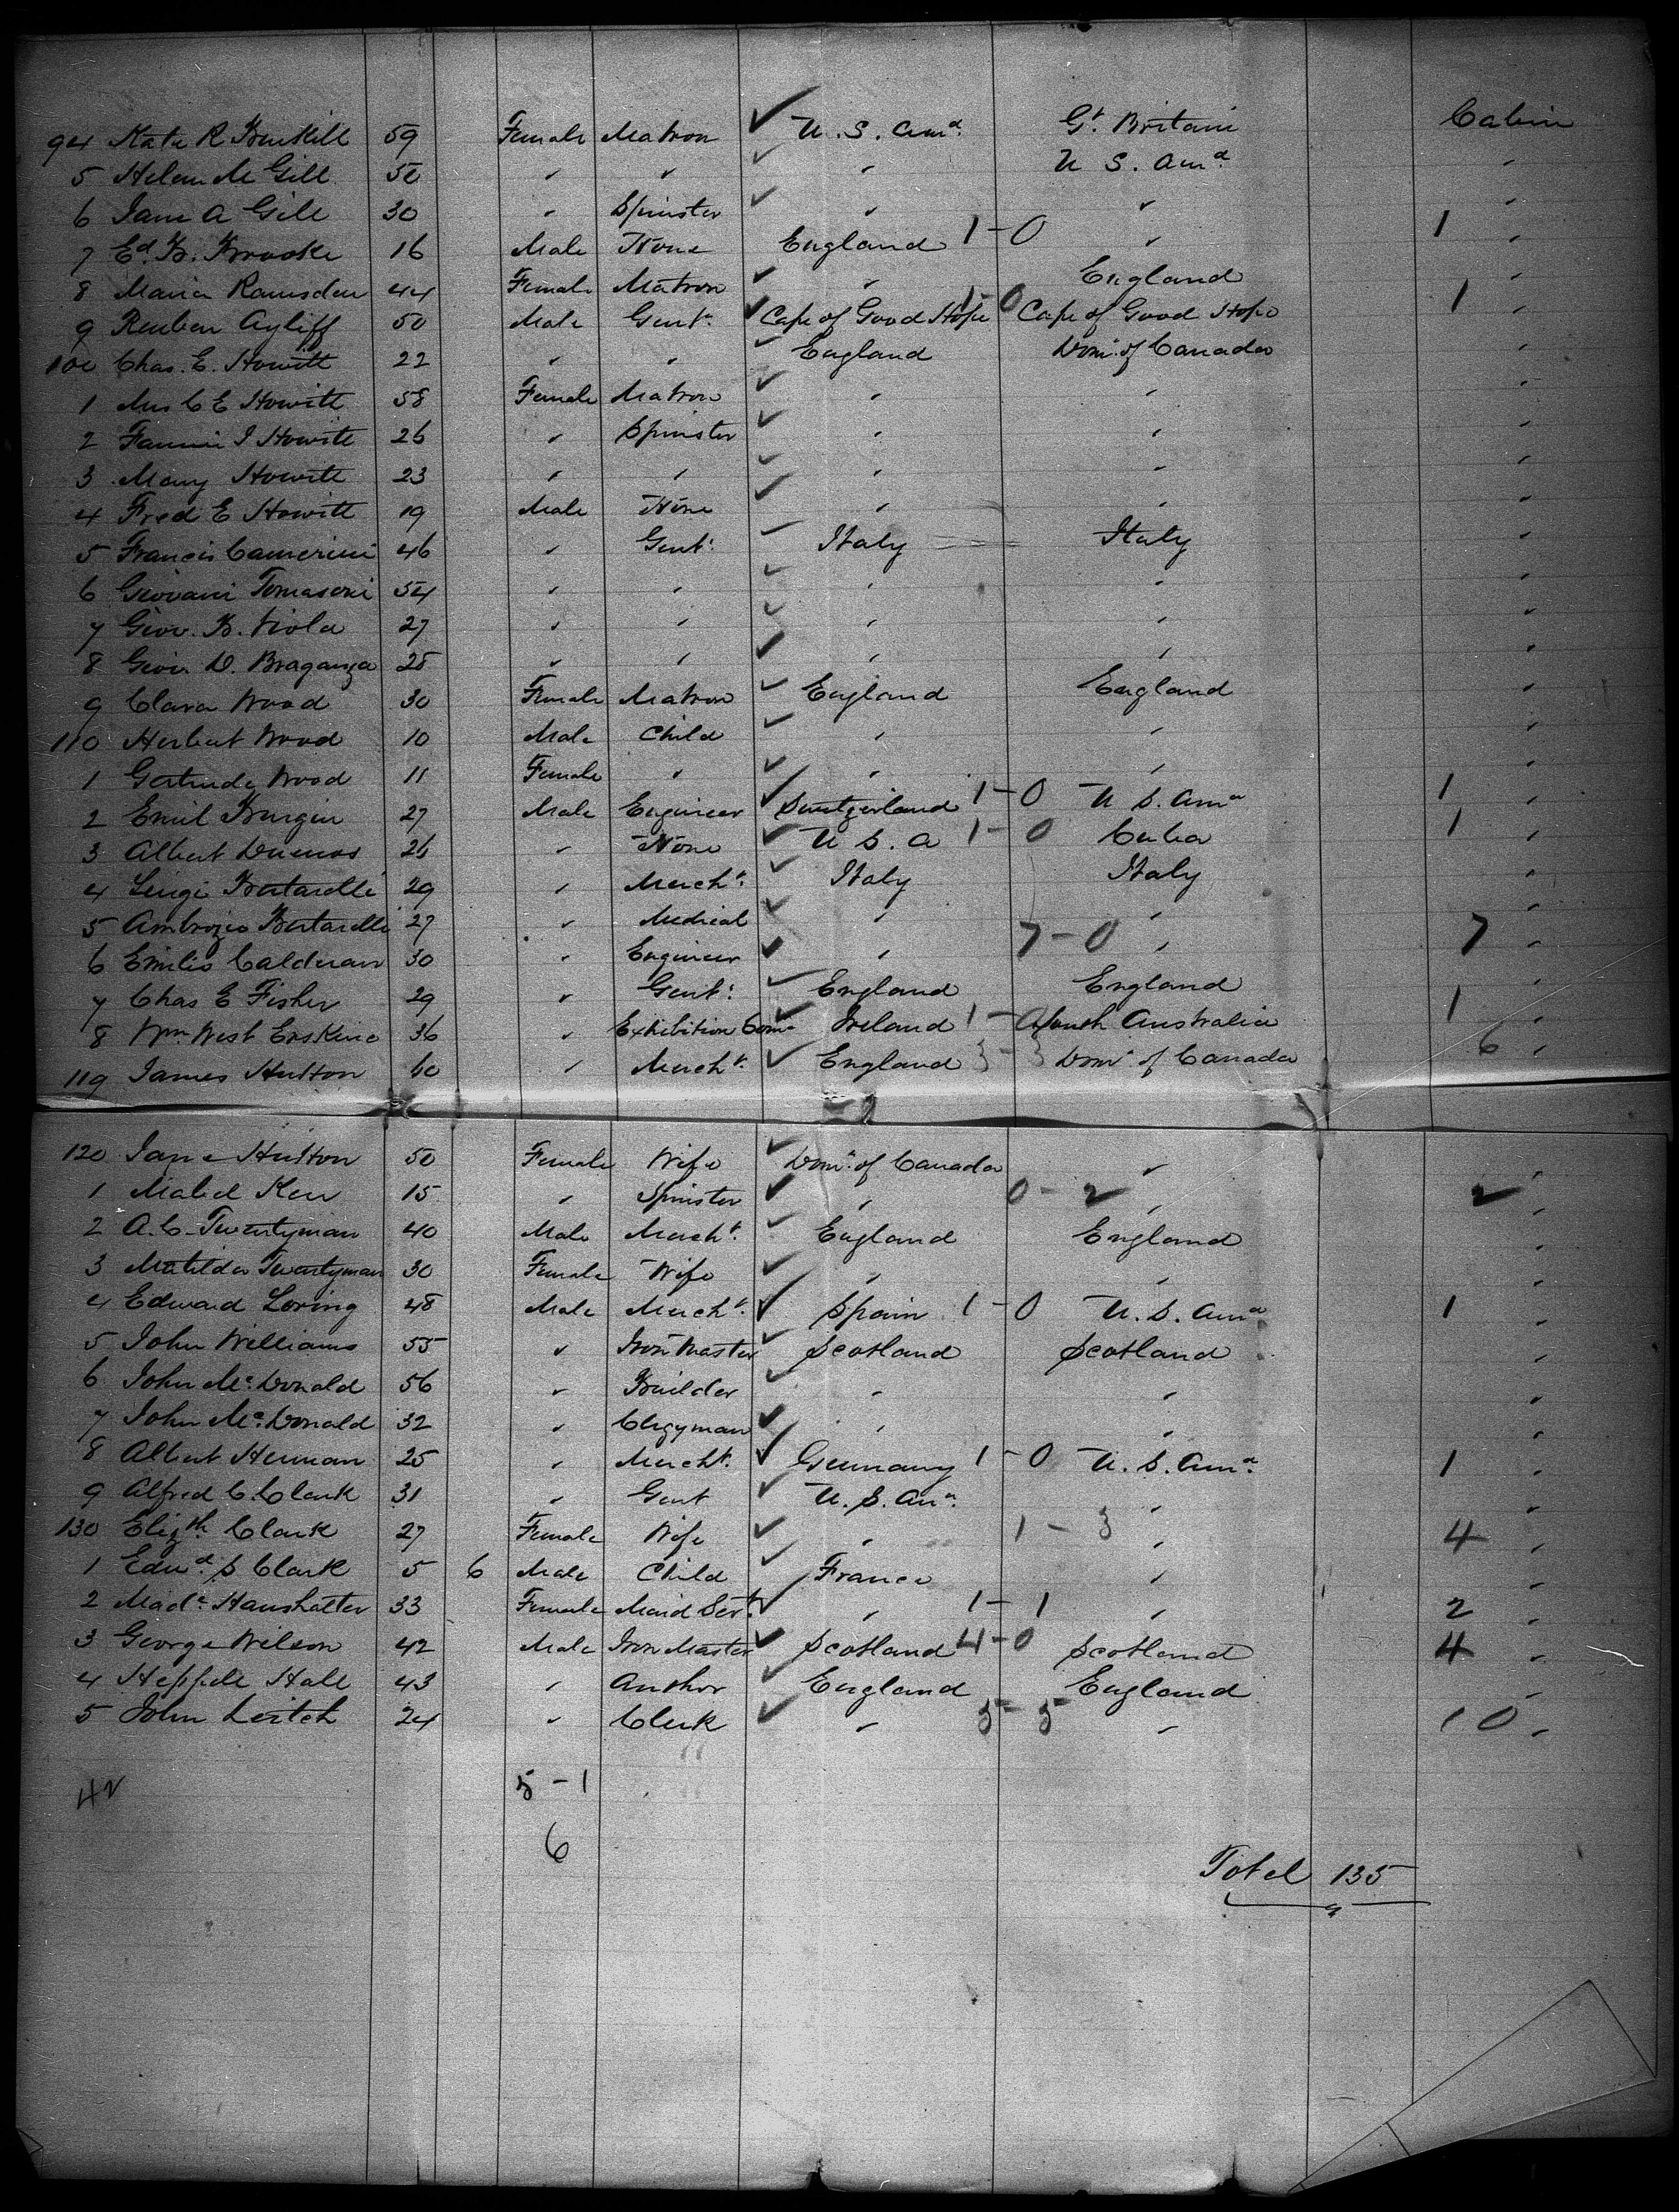 94 Kate R Burkill 59 Female Matron U. S. Ama. Gt. Britain Cabin
5 Helen M Gill 50 " " " U S. Ama. "
6 Jane A Gill 30 " Spinster " " "
7 Ed. B. Brooke 16 Male None England 1-0 " 1 "
8 Maria Ramsden 44 Female Matron " England "
9 Reuben Ayliff 50 Male Gent. Cape of Good Hope 1-0 Cape of Good Hope 1 "
100 Chas. E. Howitt 22 " " England Domn. of Canada "
1 Mrs C E Howitt 58 Female Matron " " "
2 Fannie J Howitt 26 " Spinster " " "
3 Mary Howitt 23 " " " " "
4 Fred E Howitt 19 Male None " " "
5 Francis Camerini 46 " Gent. Italy Italy "
6 Giovani Tomasoni 54 " " " " "
7 Giov. B. Viola 27 " " " " "
8 Giov. D. Braganza 28 " " " " "
9 Clara Wood 30 Female Matron England England "
110 Herbert Wood 10 Male Child " " "
1 Gertrude Wood 11 Female " " " "
2 Emil Burgin 27 Male Engineer Switzerland 1-0 U S. Ama 1 "
3 Albert Dumas 26 " None U S. A 1-0 Cuba 1 "
4 Luigi Bertarelli 29 " Mercht. Italy Italy "
5 Ambrozio Bertarelli 27 " Medical " " "
6 Emilio Calderan 30 " Engineer " 7-0 " 7 "
7 Chas E Fisher 29 " Gent. England England "
8 Wm. West Erskine 36 " Exhibition Comr Ireland 1-0 South Australia 1 "
119 James Hutton 60 " Mercht. England 3-3 Domn. of Canada 6 "
120 Jane Hutton 50 Female Wife Domn. of Canada " "
1 Mabel Kerr 15 " Spinster " 0-2 " 2 "
2 A. C. Twentyman 40 Male Mercht. England England "
3 Matilda Twentyman 30 Female Wife " " "
4 Edward Loring 48 Male Mercht. Spain 1-0 U. S. Ama 1 "
5 John Williams 55 " Iron Master Scotland Scotland "
6 John Mc. Donald 56 " Builder " " "
7 John Mc. Donald 32 " Clergyman " " "
8 Albert Herman 25 " Mercht. Germany 1-0 U. S. Ama. 1 "
9 Alfred C. Clark 31 " Gent U. S. Ama. " "
130 Elizth Clark 27 Female Wife " 1-3 " 4 "
1 Edwd. S Clark 5 6 Male Child France " "
2 Made. Haushalter 33 Female Maid Servt. " 1-1 " 2 "
3 George Wilson 42 Male Iron Master Scotland 4-0 Scotland 4 "
4 Hepple Hall 43 " Author England England "
5 John Leitch 24 " Clerk " 5-5 " 10 "
42 5-1
6
Total 135